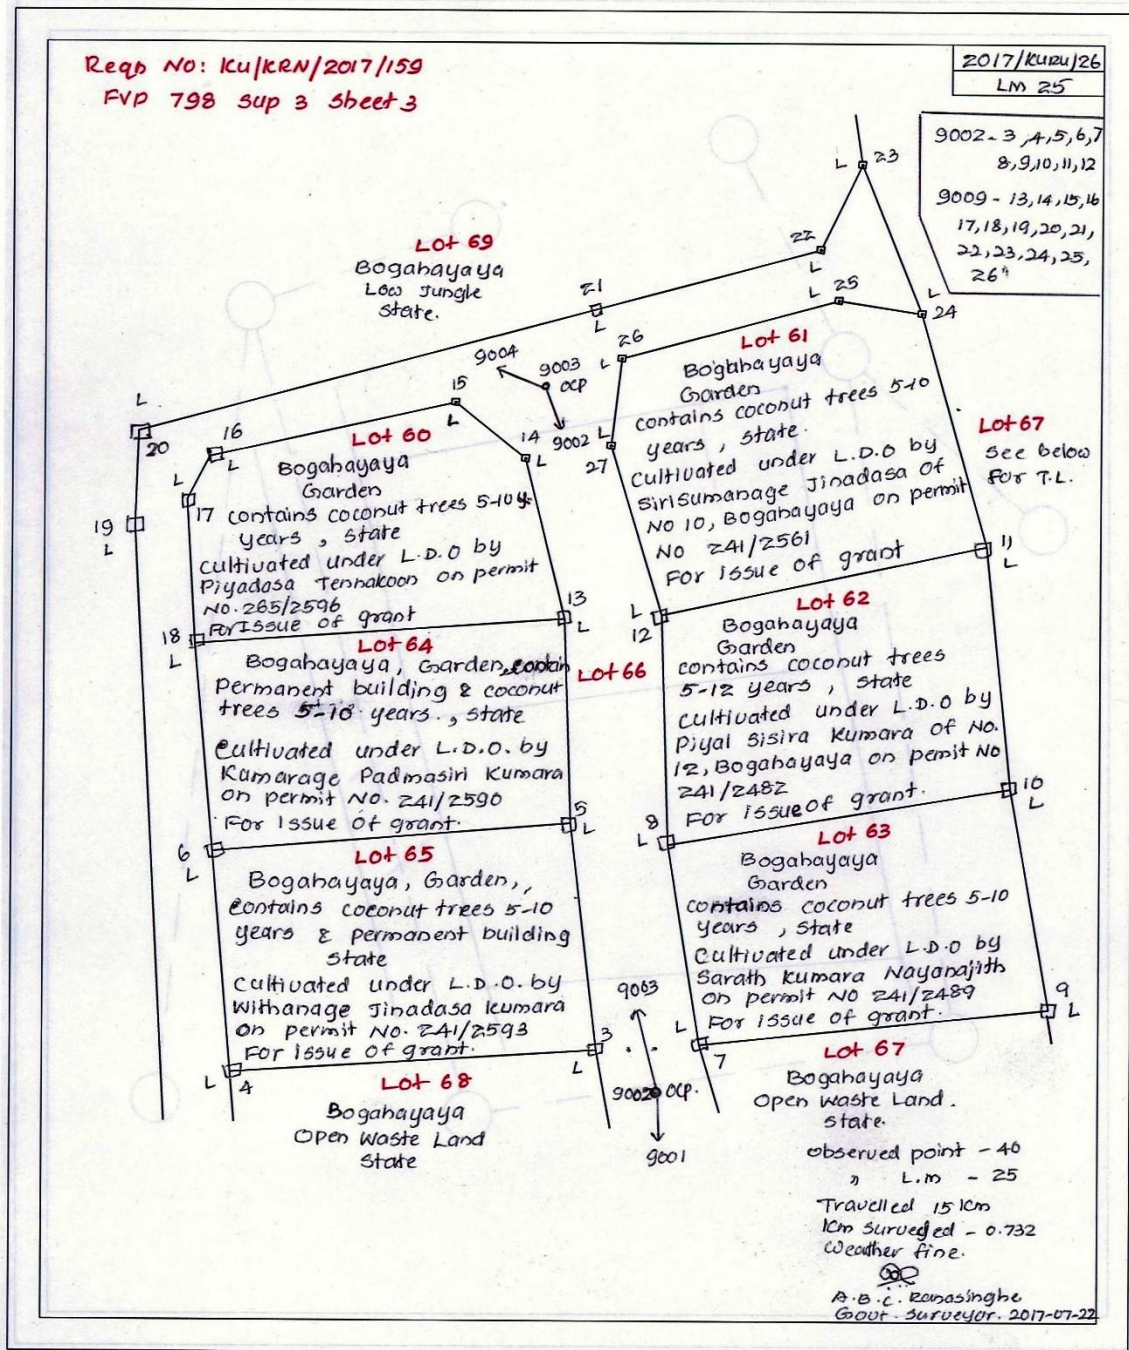 Reqn NO: KU/KRN/2017/159
FVP 798 Sup 3 Sheet 3
2017/KURU/26
LM 25
9002 - 3,4,5,6,7
8,9,10,11,12
9009 - 13,14,15,16
17,18,19,20,21,
22,23,24,25,
26"
L 23
22
L
Lot 69
Bogahayaya
Low Jungle
State.
21
L
L 25
L
24
26
L
9004
9003
OCP
9002
15
L
L
20
16
L
14
L
L
27
Lot 61
Bogahayaya
Garden
contains coconut trees 5-10
years, state.
Cultivated under L.D.O by
Sirisumanage Jinadasa of
NO 10, Bogahayaya on permit
NO 241/2561
For issue of grant
Lot 67
See below
For T.L.
19
L
L
17
Lot 60
Bogahayaya
Garden
contains coconut trees 5-10y.
years, state
cultivated under L.D.O by
Piyadasa Tennakoon on permit
No. 265/2596
For Issue of grant
11
L
13
L
L
12
18
L
Lot 64
Bogahayaya, Garden, contain
Permanent building & coconut
trees 5-10 years., state
Cultivated under L.D.O. by
Kamarage Padmasiri Kumara
on permit No. 241/2590
For Issue of grant.
Lot 66
Lot 62
Bogahayaya
Garden
contains coconut trees
5-12 years, state
Cultivated under L.D.O by
Piyal Sisira Kumara of No.
12, Bogahayaya on pemit No
241/2482
For issue of grant.
10
L
5
L
8
L
6
L
Lot 65
Bogahayaya, Garden,,
Contains coconut trees 5-10
years & permanent building
State
Cultivated under L.D.O. by
Withanage Jinadasa kumara
on permit No. 241/2593
For issue of grant.
Lot 63
Bogahayaya
Garden
contains coconut trees 5-10
years, State
Cultivated under L.D.O by
Sarath Kumara Nayanajith
on permit NO 241/2489
For issue of grant.
9
L
9003
3
L
L
7
L
4
9002 OCP.
9001
Lot 68
Bogahayaya
Open Waste Land
State
Lot 67
Bogahayaya
Open waste Land.
state.
observed point - 40
" L.m - 25
Travelled 15 km
km surveyed - 0.732
Weather fine.
A.B.C. Ranasinghe
Govt. Surveyor. 2017-07-22